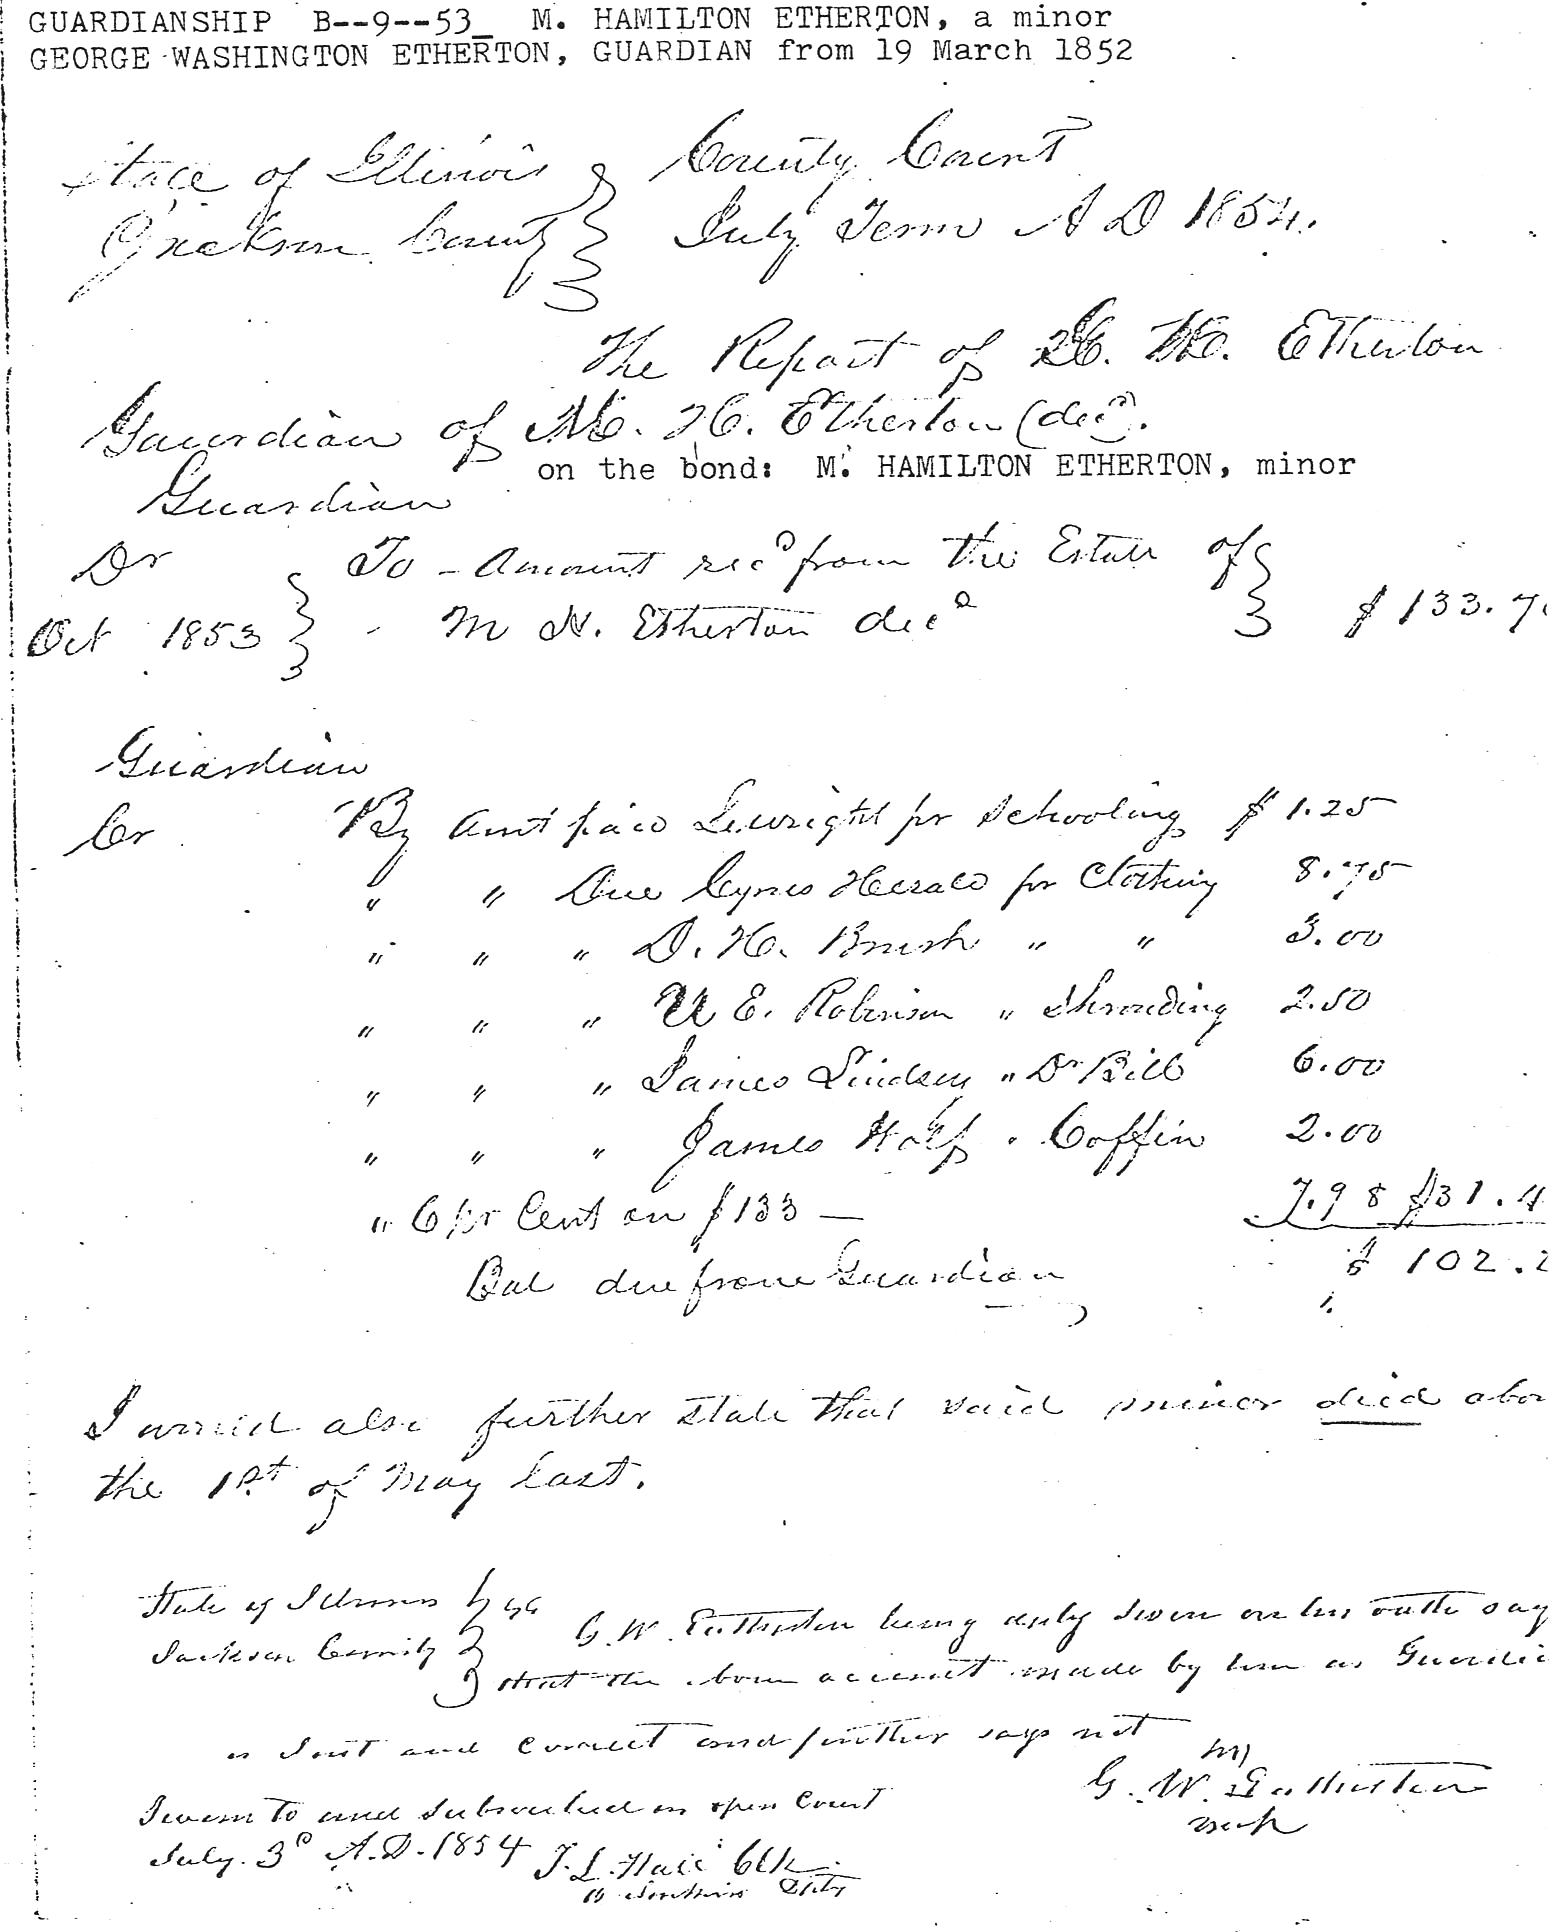 GUARDIANSHIP B--9--53_ M. HAMILTON ETHERTON, a minor
GEORGE WASHINGTON ETHERTON, GUARDIAN from 19 March 1852
State of Illinois } County Court
Jackson County } July Term A D 1854.
The Report of G. W. Etherton
Gaurdian of M. H. Etherton (decd).
on the bond: M. HAMILTON ETHERTON, minor
Guardian
Dr } To - Amount recd from the Estate of }
Oct 1853 } M H. Etherton decd } $ 133.7
Guardian
Cr By Amt paid for Schooling $ 1.25
" " Due Cyrus Herald for Clothing 8.75
" " " D. H. Brush " " 3.00
" " " E. Robinson " Shrouding 2.50
" " " James Lindsey " Dr Bill 6.00
" " " James Holf " Coffin 2.00
" 6 pr Cent on $133 — 7.98 $31.4
Bal due from Guardian $ 102.2
I would also further state that said minor died abou
the 1st of May last.
State of Illinois } ss
Jackson County } G. W. Eatherton being duly sworn on his oath say
that the above account made by him as Guardi
is Just and Correct and further says not
G. W. Eatherton
mark
Sworn to and Subscribed in open Court
July 3d A.D. 1854 J. L. Hall Clk
Dpty